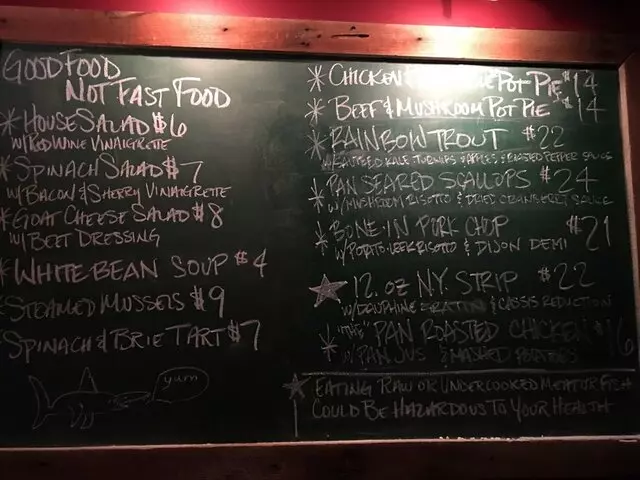 GOOD FOOD
NOT FAST FOOD
* HOUSE SALAD $6
W/ RED WINE VINAIGRETTE
* SPINACH SALAD $7
W/ BACON & SHERRY VINAIGRETTE
* GOAT CHEESE SALAD $8
W/ BEET DRESSING
* WHITE BEAN SOUP $4
STEAMED MUSSELS $9
SPINACH & BRIE TART $7
yum
* CHICKEN POT PIE $14
* BEEF & MUSHROOM POT PIE $14
* RAINBOW TROUT $22
W/ KALE, TURNIPS, APPLES & ROASTED PEPPER SAUCE
* PAN SEARED SCALLOPS $24
W/ MUSHROOM RISOTTO & DRIED CRANBERRY SAUCE
* BONE-IN PORK CHOP $21
W/ POTATO-LEEK RISOTTO & DIJON DEMI
★ 12. OZ N.Y. STRIP $22
W/ DAUPHINE GRATIN & CASSIS REDUCTION
* "THE" PAN ROASTED CHICKEN $16
W/ PAN JUS & MASHED POTATOES
★ EATING RAW OR UNDERCOOKED MEAT OR FISH
COULD BE HAZARDOUS TO YOUR HEALTH